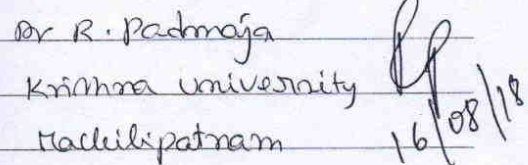 Dr R. Padmaja
Krishna University
Machilipatnam
16/08/18